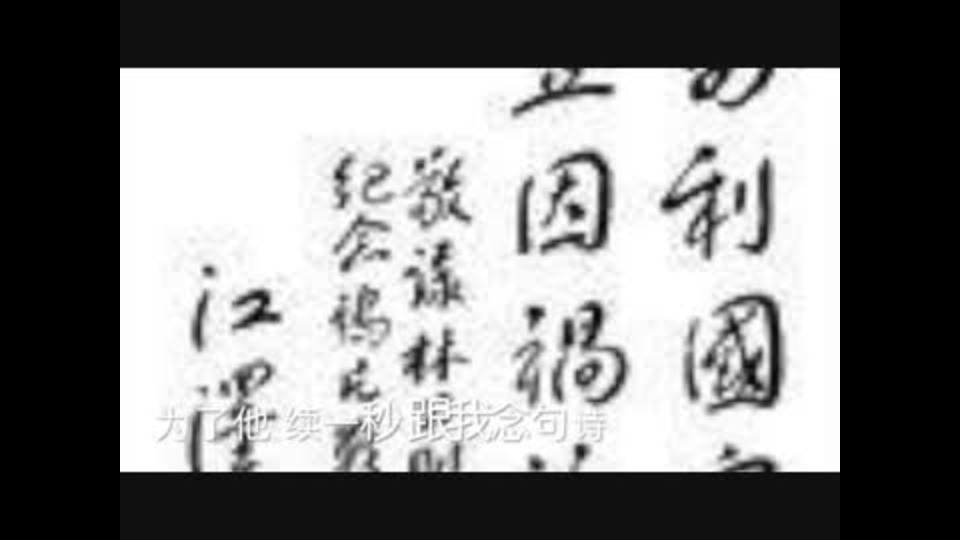 利國
因禍
敬錄林
纪念鴉片
江澤
为了他 续一秒 跟我念句诗